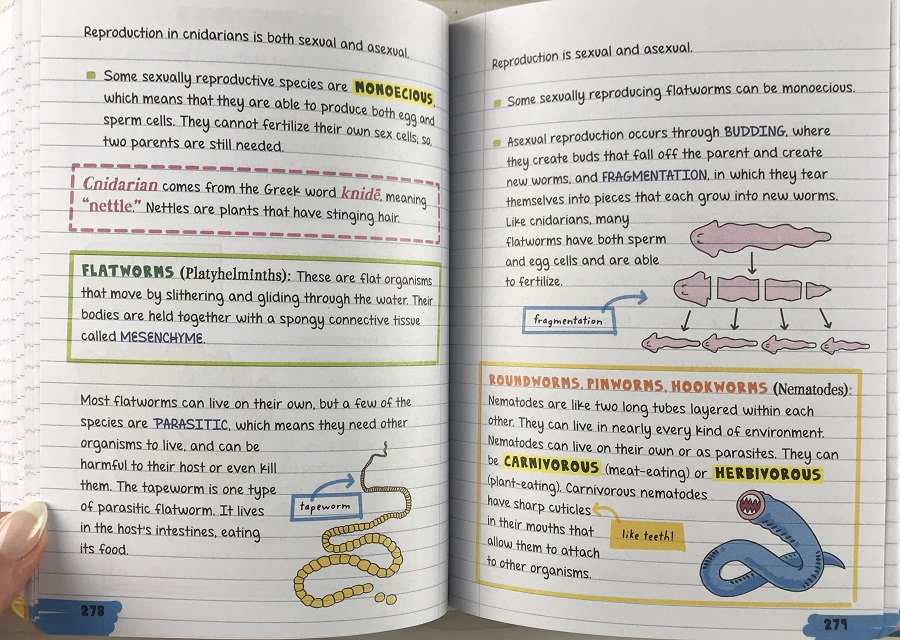 Reproduction in cnidarians is both sexual and asexual.
Some sexually reproductive species are MONOECIOUS,
which means that they are able to produce both egg and
sperm cells. They cannot fertilize their own sex cells; so,
two parents are still needed.
Cnidarian comes from the Greek word knidē, meaning
“nettle.” Nettles are plants that have stinging hair.
FLATWORMS (Platyhelminths): These are flat organisms
that move by slithering and gliding through the water. Their
bodies are held together with a spongy connective tissue
called MESENCHYME.
Most flatworms can live on their own, but a few of the
species are PARASITIC, which means they need other
organisms to live, and can be
harmful to their host or even kill
them. The tapeworm is one type
of parasitic flatworm. It lives
in the host's intestines, eating
its food.
tapeworm
278
Reproduction is sexual and asexual.
Some sexually reproducing flatworms can be monoecious.
Asexual reproduction occurs through BUDDING, where
they create buds that fall off the parent and create
new worms, and FRAGMENTATION, in which they tear
themselves into pieces that each grow into new worms.
Like cnidarians, many
flatworms have both sperm
and egg cells and are able
to fertilize.
fragmentation
ROUNDWORMS, PINWORMS, HOOKWORMS (Nematodes):
Nematodes are like two long tubes layered within each
other. They can live in nearly every kind of environment.
Nematodes can live on their own or as parasites. They can
be CARNIVOROUS (meat-eating) or HERBIVOROUS
(plant-eating). Carnivorous nematodes
have sharp cuticles
in their mouths that
allow them to attach
to other organisms.
like teeth!
279